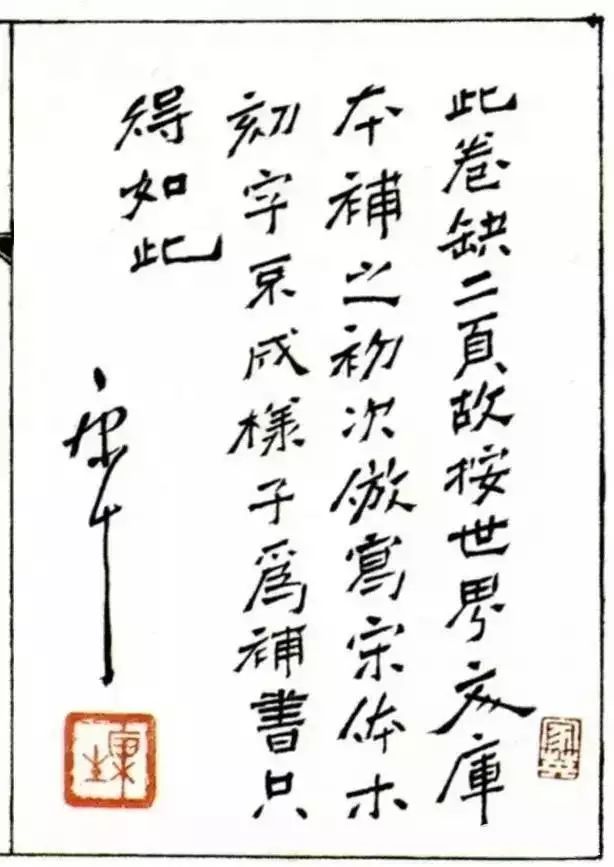 此卷缺二頁故按世界文庫
本補之初次倣寫宋体木
刻字不成樣子爲補書只
得如此
康生
康生